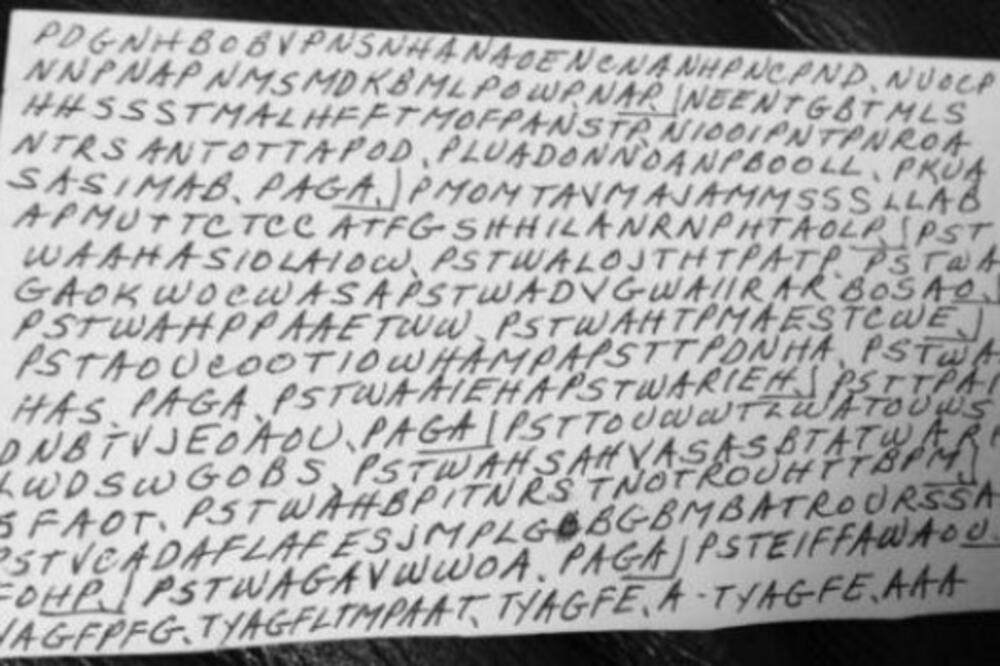 PDGNHBOBVPNSNHANAOENCNANHPNCPND, NUOCP
NNPNAPNMSMDKBMLPOWP, NAP, NEENTGBTMLS
HHSSSTMALHFFTMOFPANSTP, NIOOIPNTPNROA
NTRSANTOTTAPOD, PLUADONNDANPBOOLL, PKUA
SASIMAB, PAGA, PMOMTAVMAJAMMSSSLLAB
APMUTTCTCCATFGSHHILANRNPHTAOLP, PST
WAAHASIOLAIOW, PSTWALOJTHTPATP, PSTWA
GAOKWOCWASAPSTWADVGWAIIRARBOSAO,
PSTWAHPPAAETWW, PSTWAHTPMAESTCWE,
PSTAOUCOOTIOWHAMPAPSTTPDNHA, PSTWA
HAS, PAGA, PSTWAAIEHAPSTWARIEH, PSTTPAI
DNBTVJEOAOU, PAGA PSTTOUWWTLWATOUWS
LWDSWGOBS, PSTWAHSAHVASASBTATWAR
SFAOT, PSTWAHBPITNRSTNOTROUHTTBPM
PSTVCADAFLAFESJMPLGBBGBMBATROURSSA
FOHP, PSTWAGAVWWOA, PAGA PSTEIFFAWAOU,
YAGFPFG, TYAGFLTMPAAT, TYAGFE, A-TYAGFE, AAA